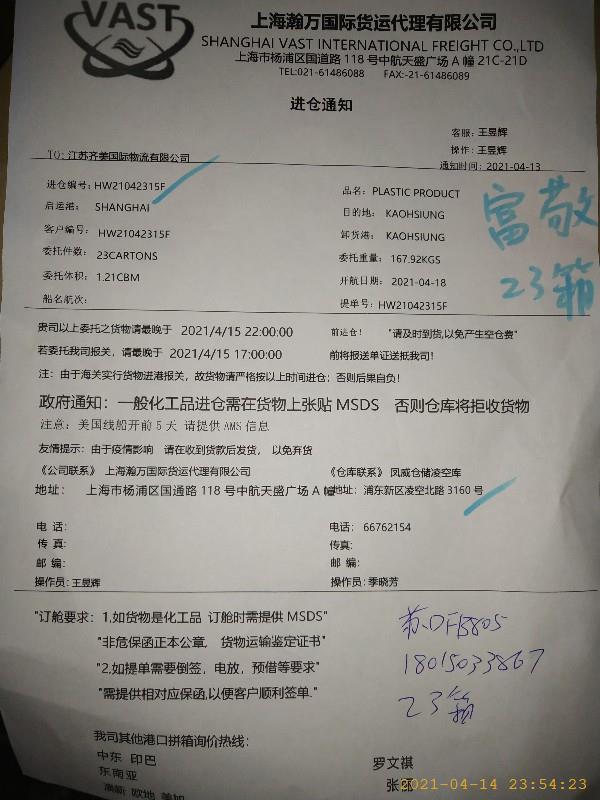 VAST
上海瀚万国际货运代理有限公司
SHANGHAI VAST INTERNATIONAL FREIGHT CO.,LTD
上海市杨浦区国道路 118 号中航天盛广场 A 幢 21C-21D
TEL:021-61486088 FAX:-21-61486089
进仓通知
客服：王昱辉
操作：王昱辉
TO: 江苏齐美国际物流有限公司
通知时间：2021-04-13
进仓编号：HW21042315F 品名：PLASTIC PRODUCT
启运港： SHANGHAI 目的地： KAOHSIUNG
客户编号： HW21042315F 卸货港： KAOHSIUNG
委托件数： 23CARTONS 委托重量： 167.92KGS
委托体积： 1.21CBM 开航日期： 2021-04-18
船名航次： 提单号：HW21042315F
富敬
23箱
贵司以上委托之货物请最晚于 2021/4/15 22:00:00 前进仓！ "请及时到货,以免产生空仓费"
若委托我司报关，请最晚于 2021/4/15 17:00:00 前将报送单证送抵我司！
注：由于海关实行货物进港报关，故货物请严格按以上时间进仓；否则后果自负！
政府通知：一般化工品进仓需在货物上张贴 MSDS 否则仓库将拒收货物
注意：美国线船开前 5 天 请提供 AMS 信息
友情提示：由于疫情影响 请在收到货款后发货， 以免弃货
《公司联系》上海瀚万国际货运代理有限公司 《仓库联系》凤威仓储凌空库
地址： 上海市杨浦区国通路 118 号中航天盛广场 A 幢 地址：浦东新区凌空北路 3160 号
电 话： 电话： 66762154
传 真： 传真：
邮 编： 邮 编：
操作员：王昱辉 操作员：季晓芳
"订舱要求：1,如货物是化工品 订舱时需提供 MSDS"
"非危保函正本公章， 货物运输鉴定证书"
"2,如提单需要倒签，电放，预借等要求"
"需提供相对应保函,以便客户顺利签单."
苏DFB805
18015033867
23箱
我司其他港口拼箱询价热线：
中东 印巴 罗文祺
东南亚
澳新 欧地 美加
2021-04-14 23:54:23